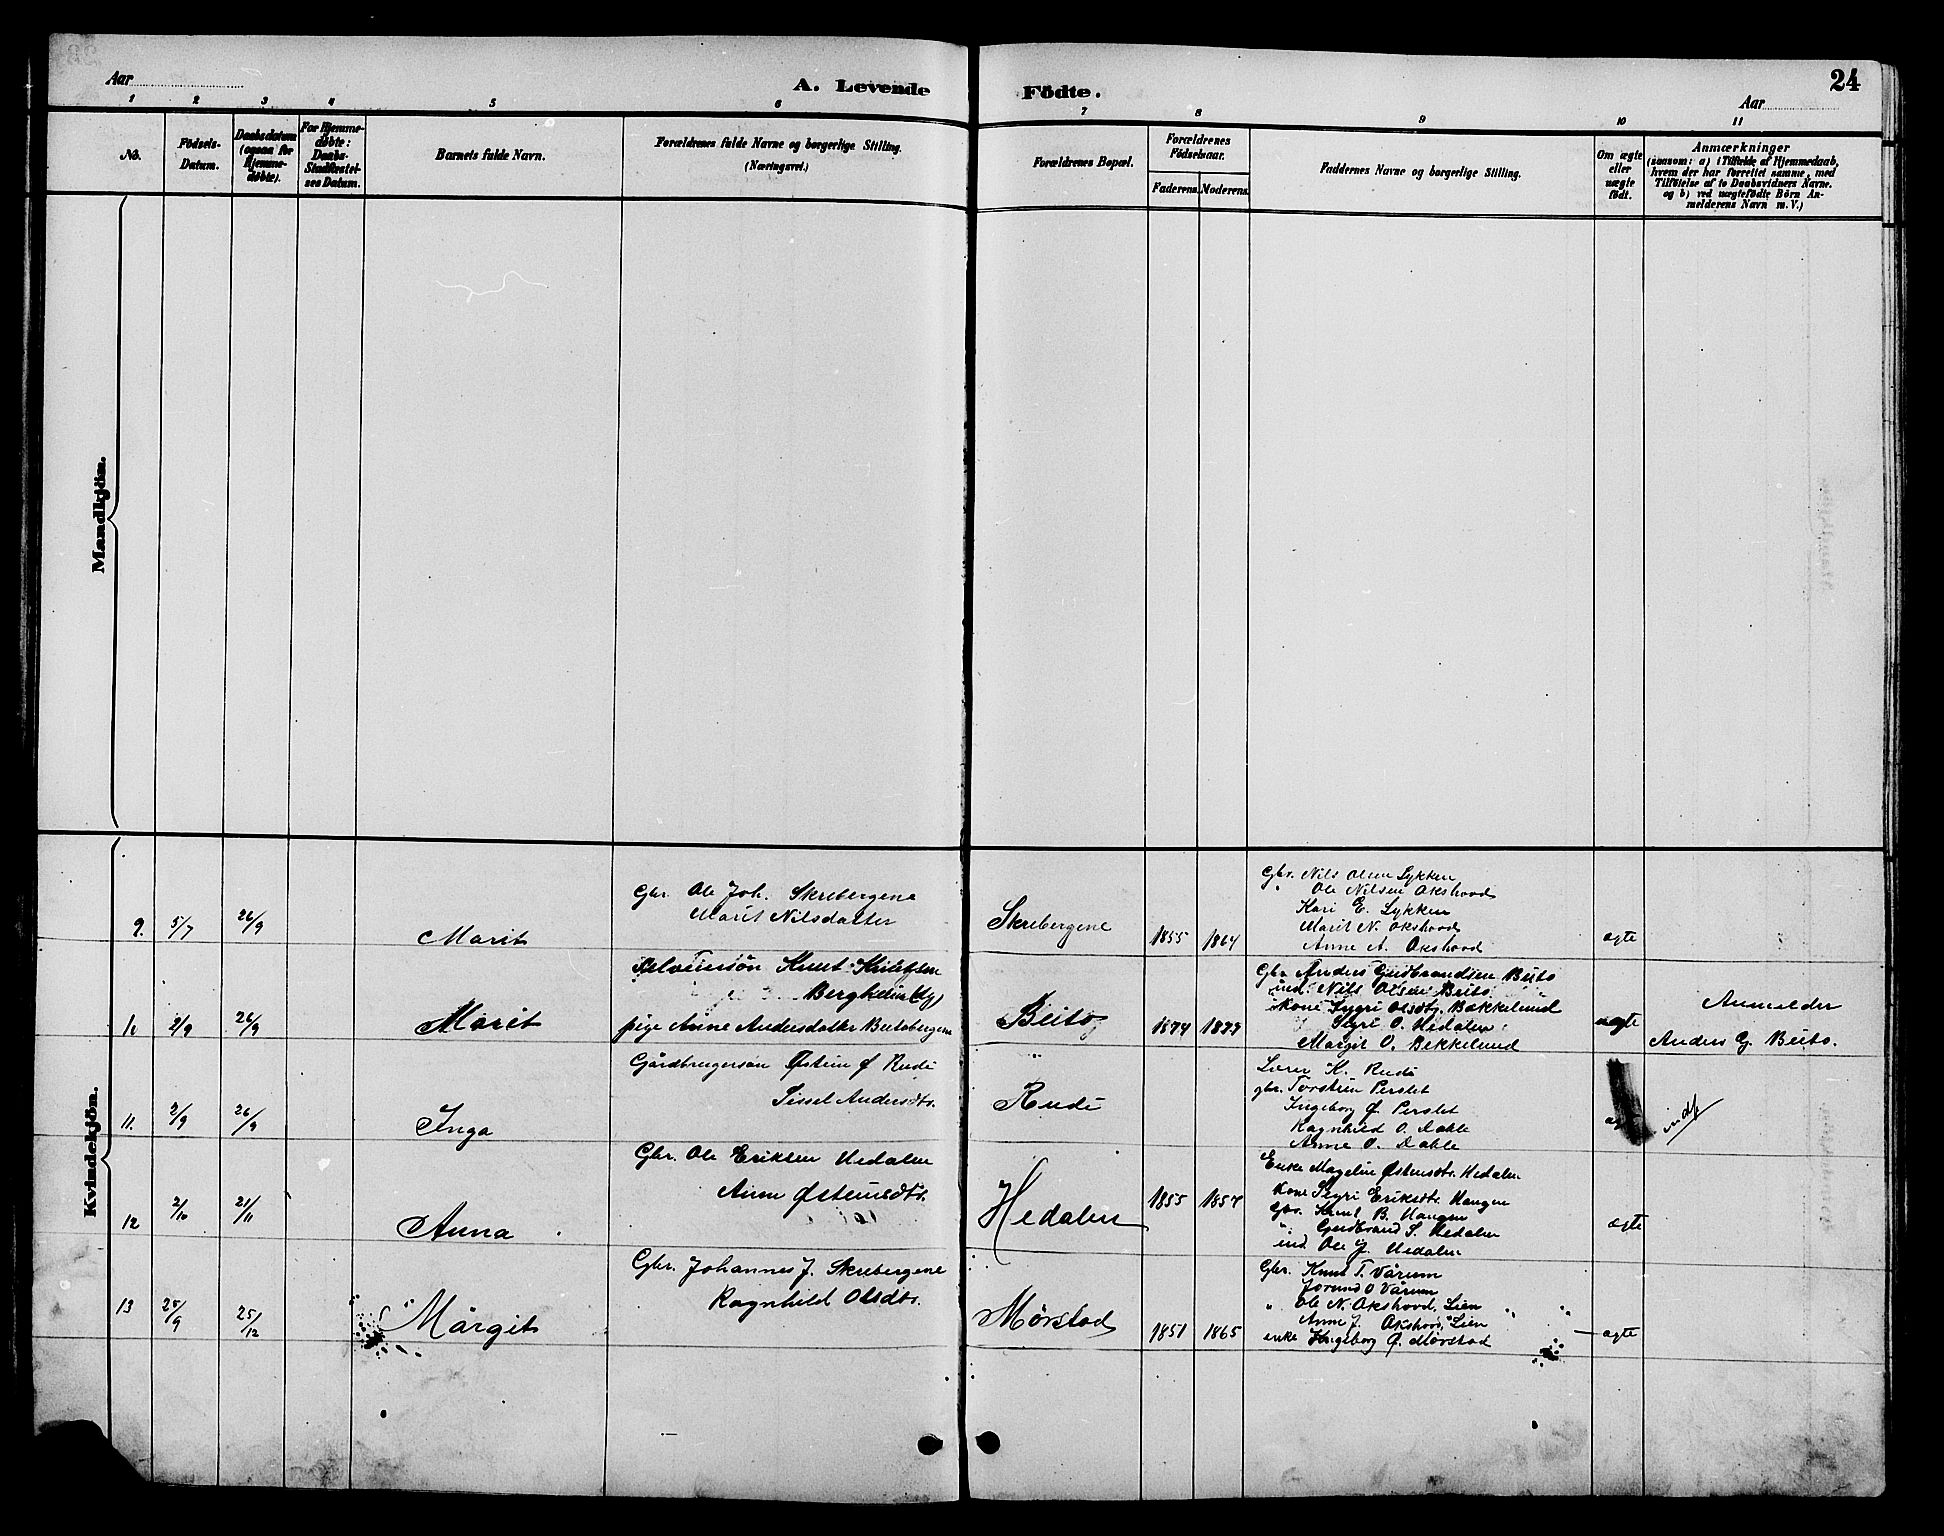 24
Aar
A. Levende Födte.
Aar
1 2 3 4 5 6 7 8 9 10 11
No.
Födsels-
Datum.
Daabsdatum
(ogsaa for
Hjemme-
döbte).
For Hjemme-
döbte:
Daabs-
Stadfæstel-
ses Datum.
Barnets fulde Navn.
Forældrenes fulde Navne og borgerlige Stilling.
(Næringsvei.)
Forældrenes Bopæl.
Forældrenes
Födselsaar.
Faderens. Moderens.
Faddernes Navne og borgerlige Stilling.
Om ægte
eller
uægte
födt.
Anmærkninger
(saasom: a) i Tilfælde af Hjemmedaab,
hvem der har forrettet samme, med
Tilföielse af to Daabsvidners Navne.
og b) ved uægtefödte Börn An-
melderens Navn m. V.)
Mandkjön.
Kvindekjön.
9. 5/7 26/9 Marit
Gbr. Ole Joh. Skrebergene
Marit Nilsdatter
Skrebergene 1855 1864
Gbr. Nils Olsen Lykken
" Ole Nilsen Okshovd
Kari E. Lykken
Marit N. Okshovd
Anne A. Okshovd
ægte
2/9 26/9 Marit
Knut Knutsen
Bergheim
pige Anne Andersdatter Beitobergene
Beito 1874 1877
Gbr Anders Gudbrandsen Beito
ind. Nils Olsen Beito
kone Sygri Olsdtr. Bækkelund
Sygri O. Hedalen
Margit O. Bekkelund
uægte
Anmelder
Anders G. Beito.
11. 2/9 26/9 Inga
Gårdbrugersøn Østein Ø Rudi
Sissel Andersdtr.
Rudi
Lærer K. Rudi
gbr. Torstein Perslet
Ingeborg Ø. Perslet
Ragnhild O. Dahle
Anne O. Dahle
12 2/10 21/11 Anna
Gbr. Ole Eriksen Hedalen
Anne Østensdtr.
Hedalen 1855 1857
Enke Magelin Østensdtr. Hedalen
Kone Sygri Eriksdtr. Haugen
Gbr. Knut B. Haugen
" Gudbrand S. Hedalen
ind. Ole J. Hedalen
ægte
13 25/9 25/12 Margit
Gbr. Johannes J. Skrebergene
Ragnhild Olsdtr.
Mørstad 1851 1865
Gbr. Knut T. Vårum
Jorund O Vårum
" Ole N. Okshovd, Lien
Anne J. Okshovd, Lien
enke Ingeborg Ø. Mørstad
ægte